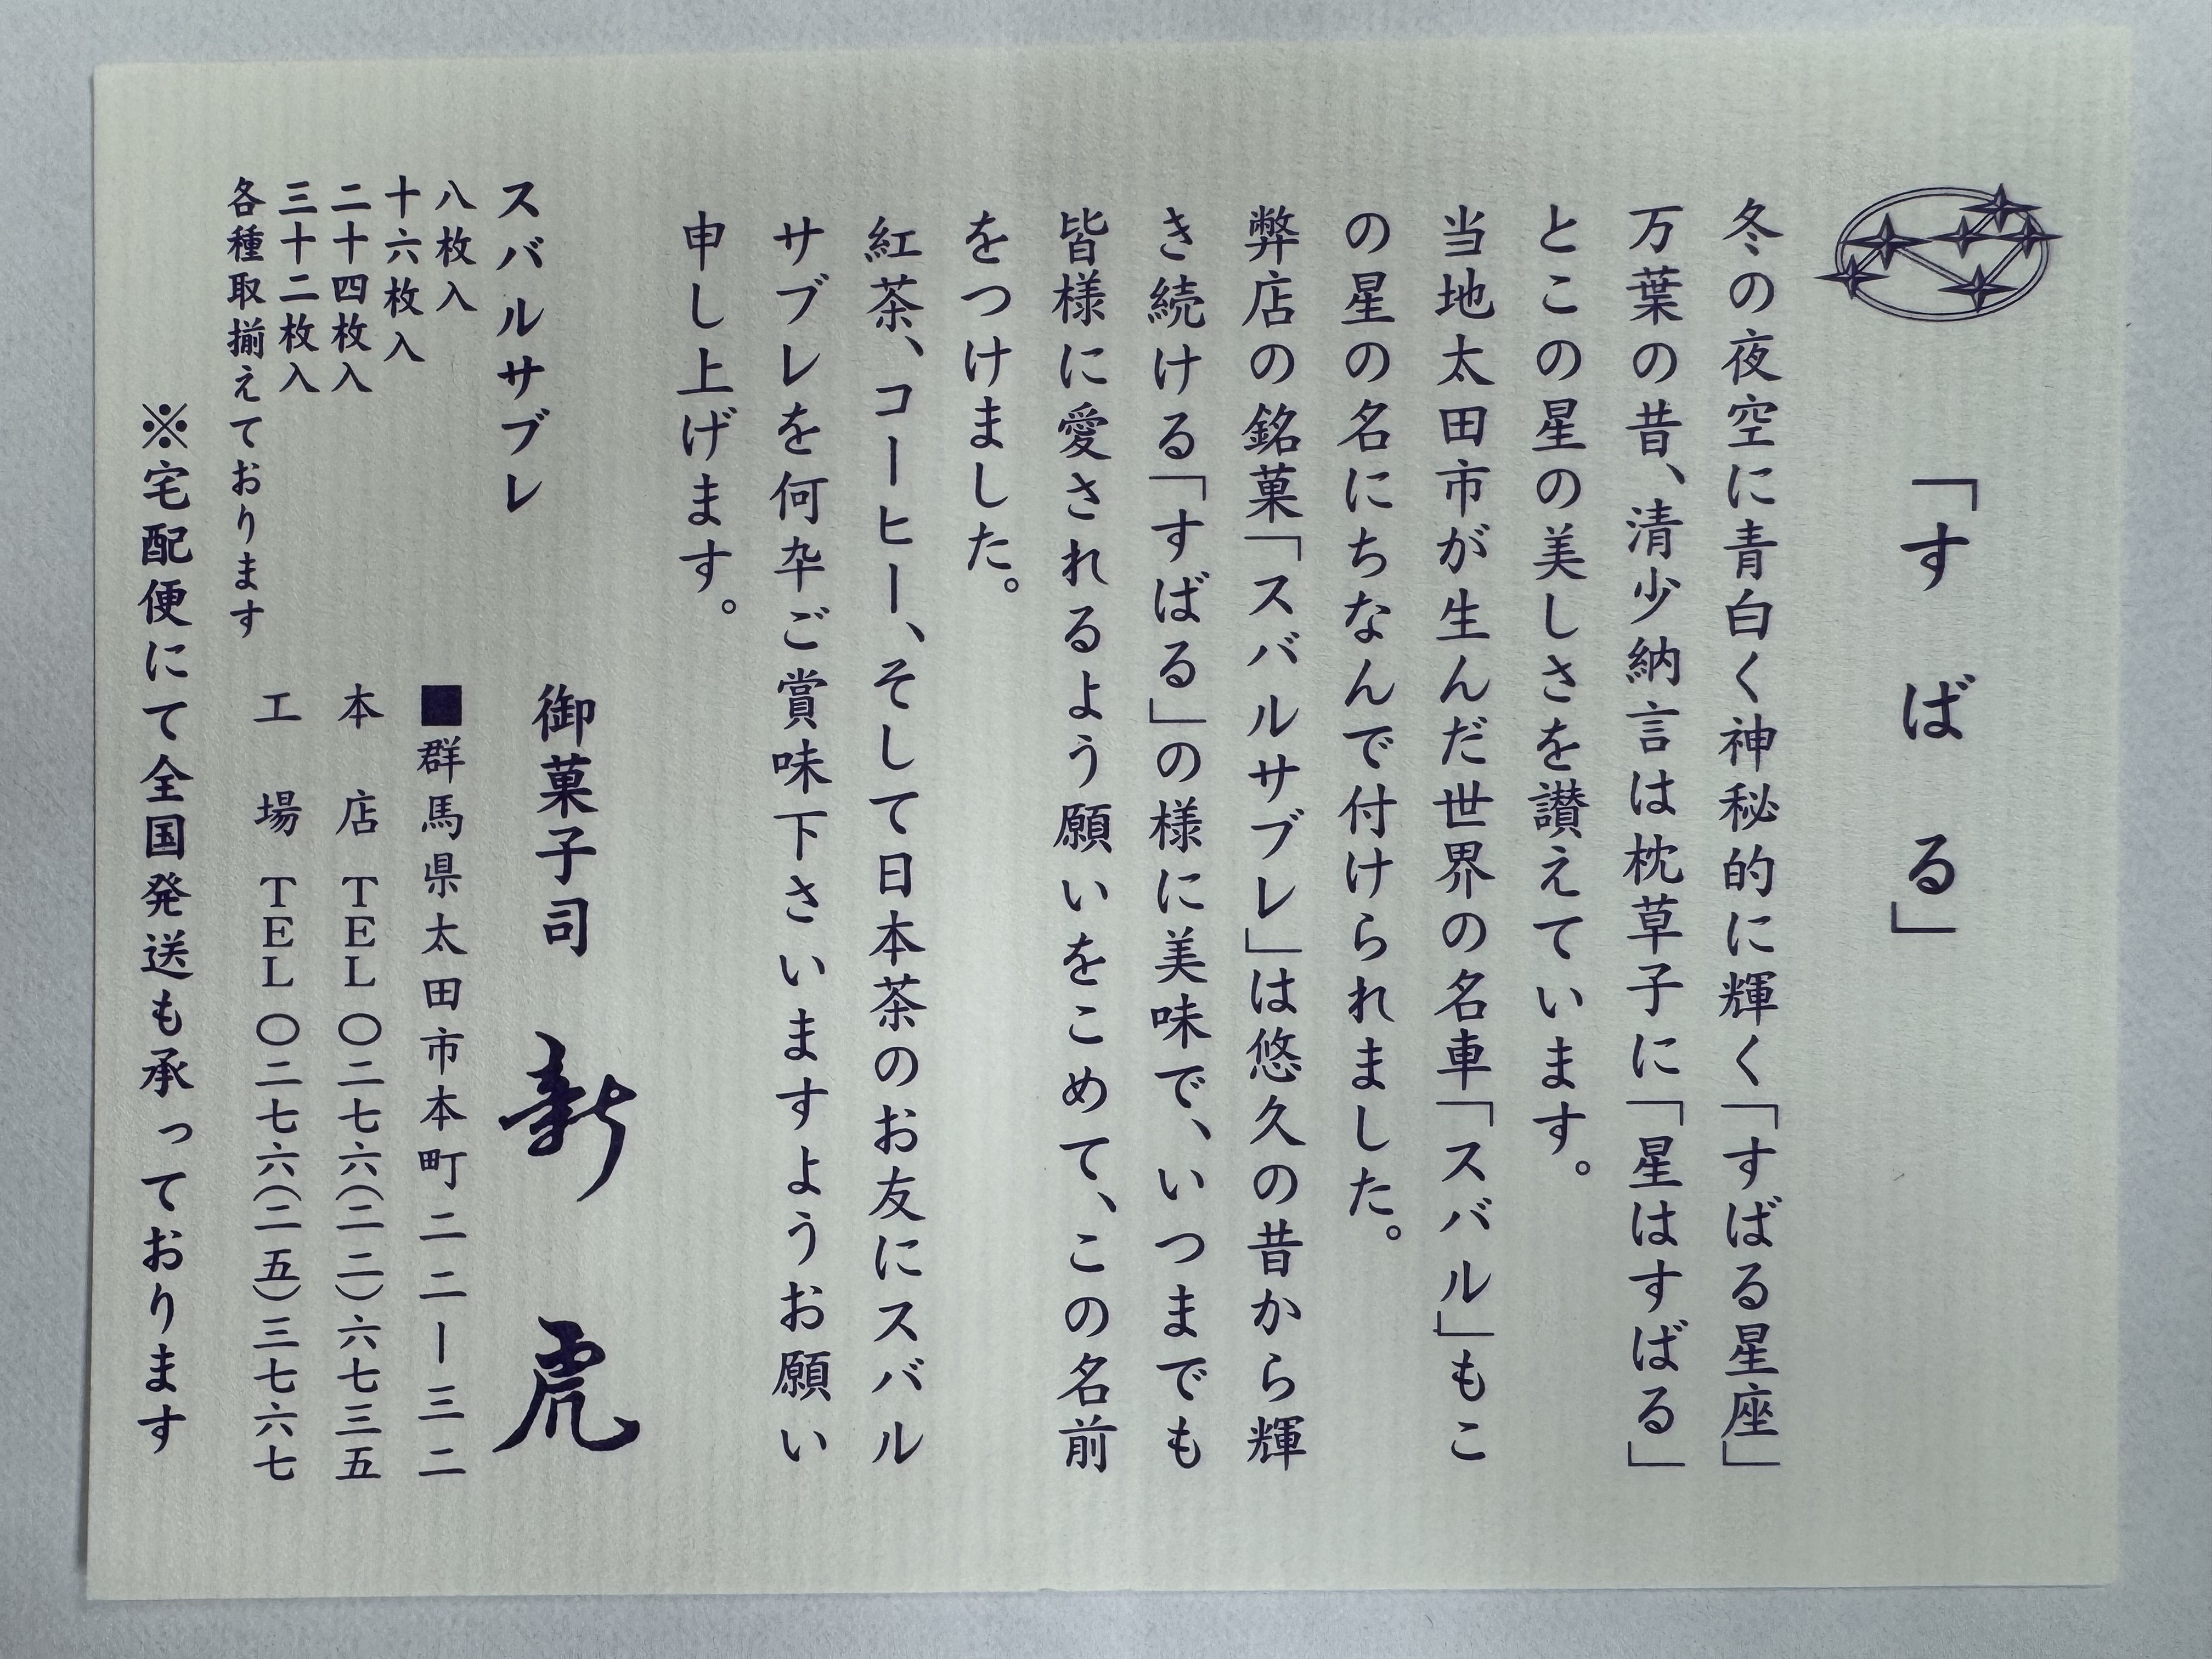 「すばる」
冬の夜空に青白く神秘的に輝く「すばる星座」
万葉の昔、清少納言は枕草子に「星はすばる」
とこの星の美しさを讃えています。
当地太田市が生んだ世界の名車「スバル」もこ
の星の名にちなんで付けられました。
弊店の銘菓「スバルサブレ」は悠久の昔から輝
き続ける「すばる」の様に美味で、いつまでも
皆様に愛されるよう願いをこめて、この名前
をつけました。
紅茶、コーヒー、そして日本茶のお友にスバル
サブレを何卒ご賞味下さいますようお願い
申し上げます。
スバルサブレ
八枚入
十六枚入
二十四枚入
三十二枚入
各種取揃えております
御菓子司 新虎
■群馬県太田市本町二二ー三二
本店 TEL〇二七六(二二)六七三五
工場 TEL〇二七六(二五)三七六七
※宅配便にて全国発送も承っております